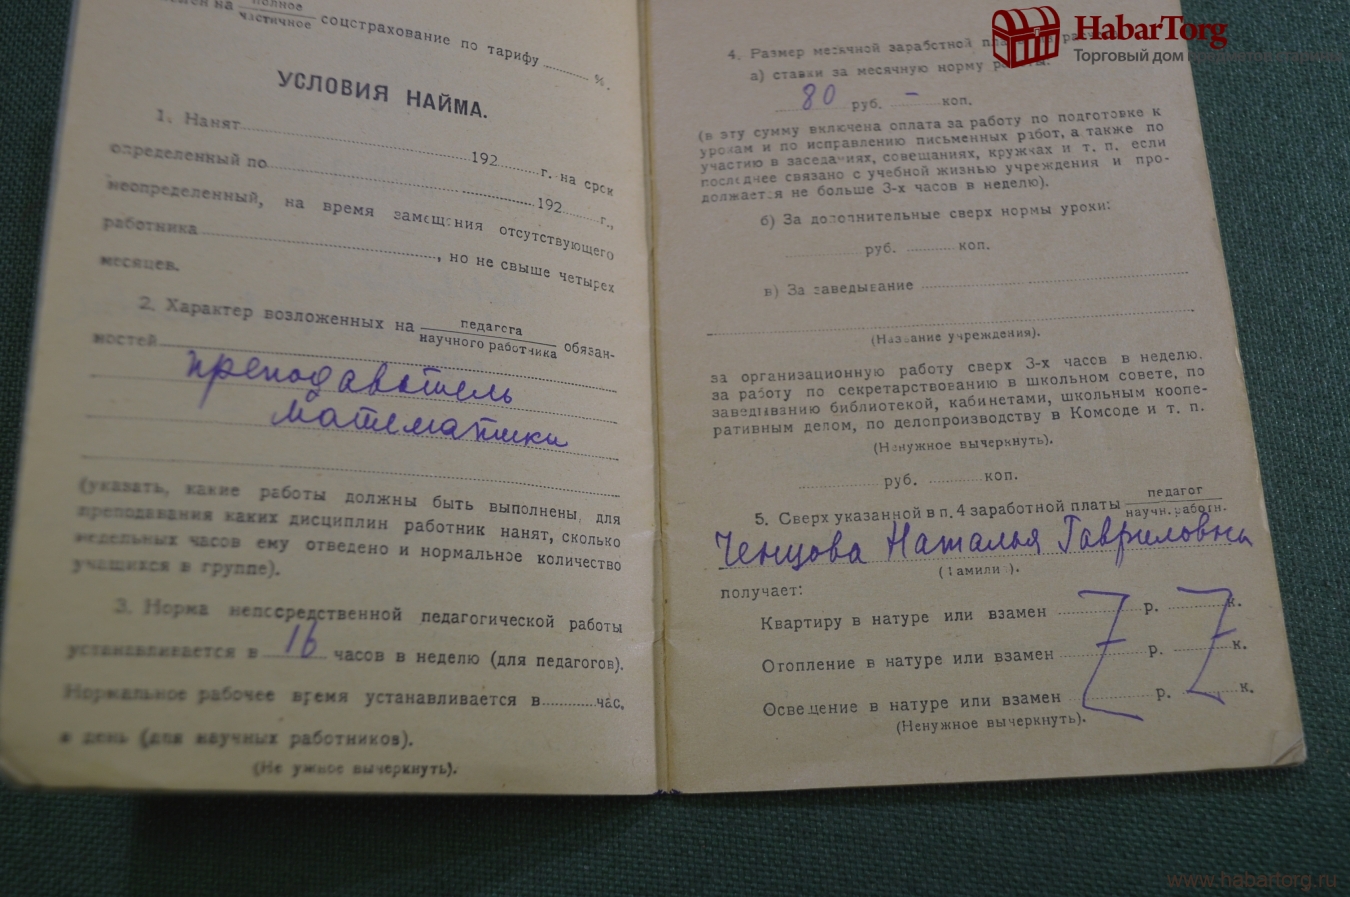 полное
на частичное соцстрахование по тарифу %.
УСЛОВИЯ НАЙМА.
1. Нанят 192 г. на срок
определенный по 192 г.,
неопределенный, на время замещения отсутствующего
работника , но не свыше четырех
месяцев.
2. Характер возложенных на педагога
научного работника обязан-
ностей
преподаватель
математики
(указать, какие работы должны быть выполнены, для
преподавания каких дисциплин работник нанят, сколько
недельных часов ему отведено и нормальное количество
учащихся в группе).
3. Норма непосредственной педагогической работы
устанавливается в 16 часов в неделю (для педагогов).
Нормальное рабочее время устанавливается в час.
в день (для научных работников).
(Не ужное вычеркнуть).
4. Размер месячной заработной
а) ставки за месячную норму
80 руб. – коп.
(в эту сумму включена оплата за работу по подготовке к
урокам и по исправлению письменных работ, а также по
участию в заседаниях, совещаниях, кружках и т. п. если
последнее связано с учебной жизнью учреждения и про-
должается не больше 3-х часов в неделю).
б) За дополнительные сверх нормы уроки:
руб. коп.
в) За заведывание
(Название учреждения).
за организационную работу сверх 3-х часов в неделю.
за работу по секретарствованию в школьном совете, по
заведыванию библиотекой, кабинетами, школьным коопе-
ративным делом, по делопроизводству в Комсоде и т. п.
(Ненужное вычеркнуть).
руб. коп.
5. Сверх указанной в п. 4 заработной платы педагог
научн. работн.
Ченцова Наталья Гавриловна
( амили ).
получает:
Квартиру в натуре или взамен р. к.
Отопление в натуре или взамен р. к.
Освещение в натуре или взамен р. к.
(Ненужное вычеркнуть).
HabarTorg
Торговый дом
www.habartorg.ru